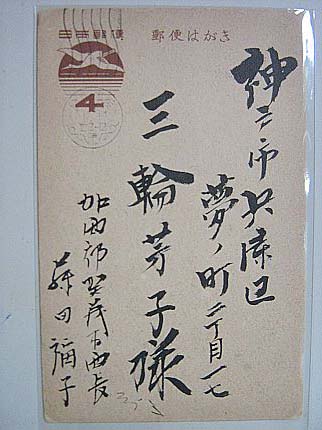 日本郵便
郵便はがき
4
神戸市兵庫区
夢ノ町二丁目一七
三輪芳子様
加西郡賀茂村西長
藤田福子